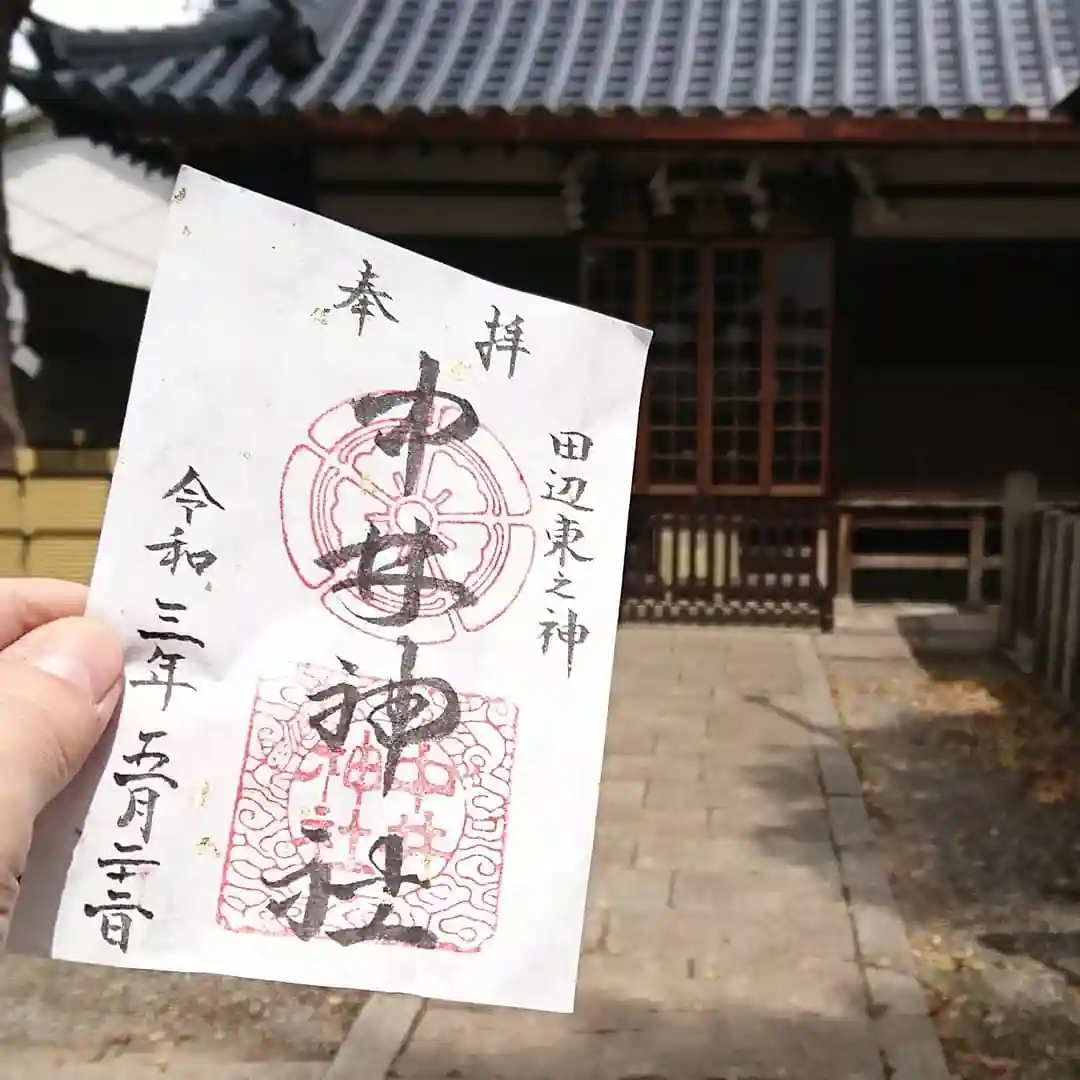 奉拝
田辺東之神
中井神社
中井
神社
令和三年五月二十三日